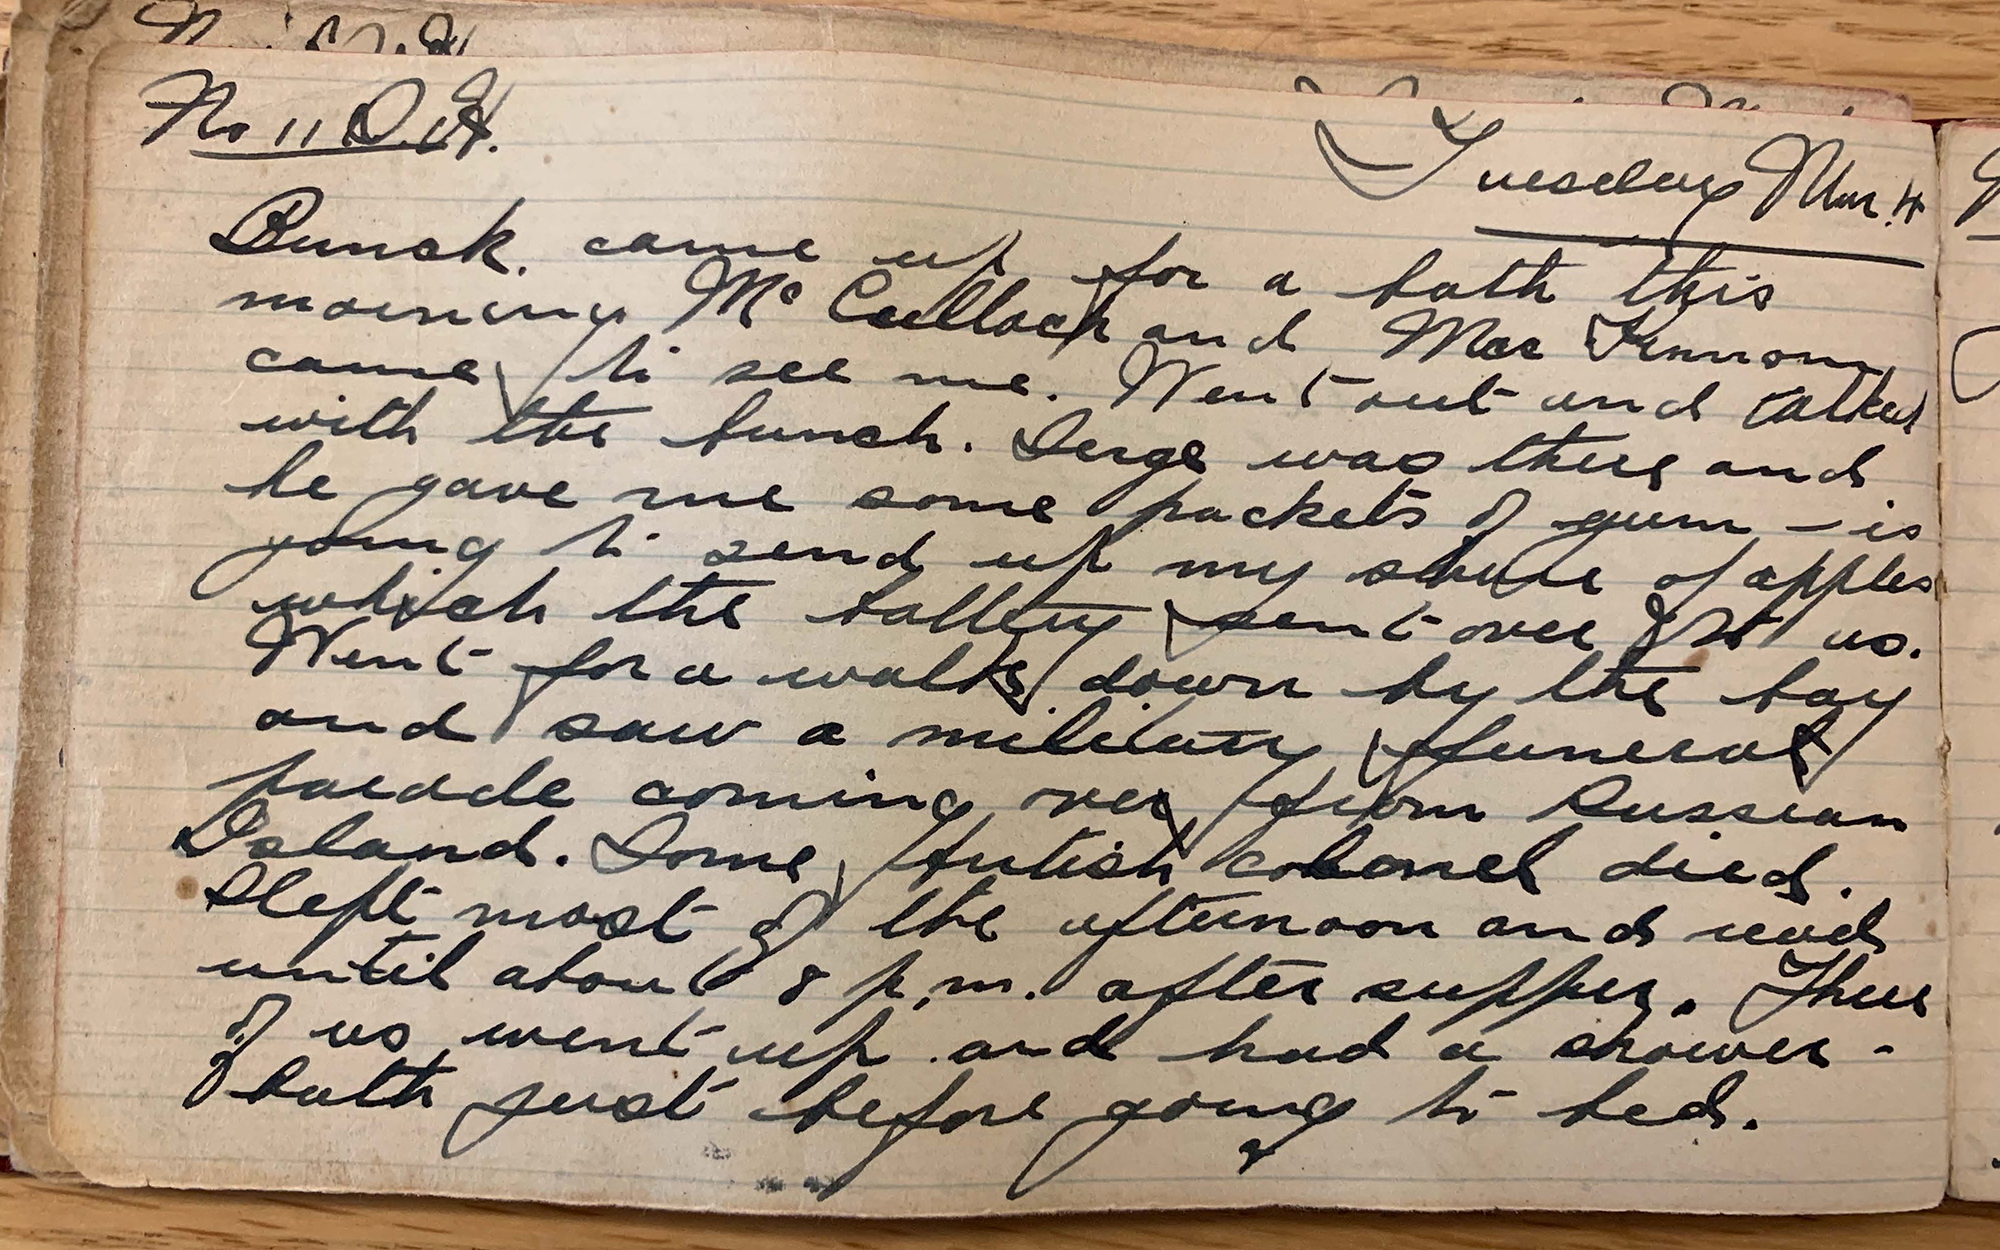 No 11 D.H.
Tuesday Mar. 4
Bunck. came up for a bath this
morning McCulloch and Mac Kinnon
came to see me. Went out and talked
with the bunch. Serge was there and
he gave me some packets of gum – is
going to send up my share of apples
which the battery sent over for us.
Went for a walk down by the bay
and saw a military funeral
parade coming over from Russian
Island. Some British colonel died.
Slept most of the afternoon and read
until about 8 p.m. after supper. Three
of us went up and had a shower-
bath just before going to bed.